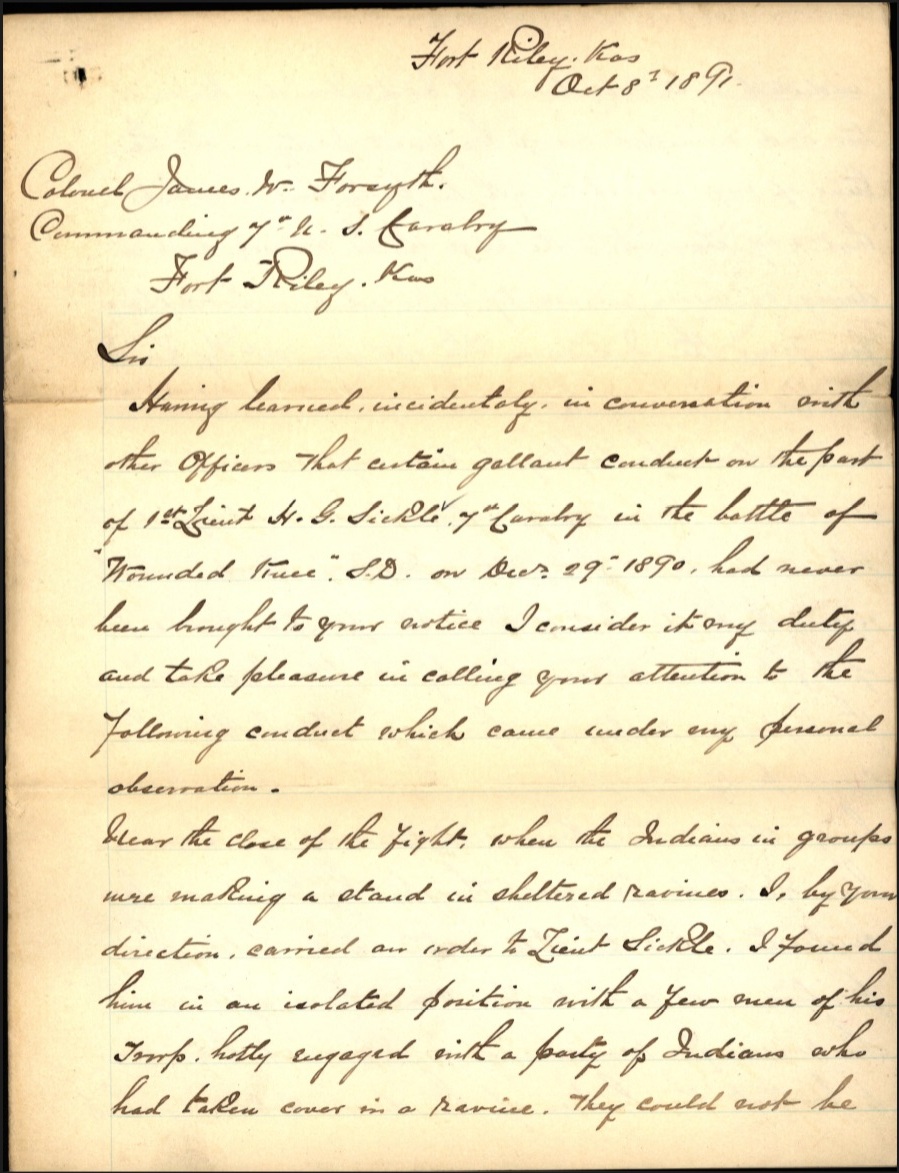 Fort Riley. Kas
Oct 8" 1891.
Colonel James. W. Forsyth.
Commanding 7" U. S. Cavalry
Fort Riley. Kas
Sir
Having learned, incidentaly, in conversation with
other Officers that certain gallant conduct on the part
of 1st Lieut H. G. Sickle, 7" Cavalry in the battle of
"Wounded Knee". S.D. on Decr 29" 1890, had never
been brought to your notice I consider it my duty
and take pleasure in calling your attention to the
following conduct which came under my personal
observation.
Near the close of the fight, when the Indians in groups
were making a stand in sheltered ravines. I, by your
direction, carried an order to Lieut Sickle. I found
him in an isolated position with a few men of his
Troop. hotly engaged with a party of Indians who
had taken cover in a ravine. They could not be